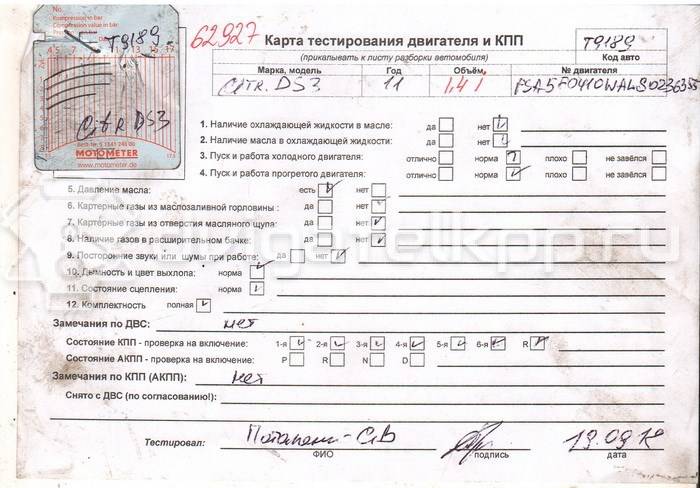 No.
Kompression in bar
Compression value in bar
T9189
Citr DS3
Best.-Nr. 5 1341 246 00
MOTOMETER
www.motometer.de
62927
Карта тестирования двигателя и КПП
(прикалывать к листу разборки автомобиля)
T9189
Код авто
Марка, модель Год Объём, № двигателя
Citr. DS3 11 1,4 i
1. Наличие охлаждающей жидкости в масле: да нет
2. Наличие масла в охлаждающей жидкости: да нет
3. Пуск и работа холодного двигателя: отлично норма плохо не завёлся
4. Пуск и работа прогретого двигателя: отлично норма плохо не завёлся
5. Давление масла: есть нет
6. Картерные газы из маслозаливной горловины: да нет
7. Картерные газы из отверстия масляного щупа: да нет
8. Наличие газов в расширительном бачке: да нет
9. Посторонние звуки или шумы при работе: да нет
10. Дымность и цвет выхлопа: норма
11. Состояние сцепления: норма
12. Комплектность полная
Замечания по ДВС: нет
Состояние КПП - проверка на включение: 1-я 2-я 3-я 4-я 5-я 6-я R
Состояние АКПП - проверка на включение: P R N D
Замечания по КПП (АКПП): нет
Снято с ДВС (по согласованию!):
Тестировал: 19.09.18
ФИО подпись дата